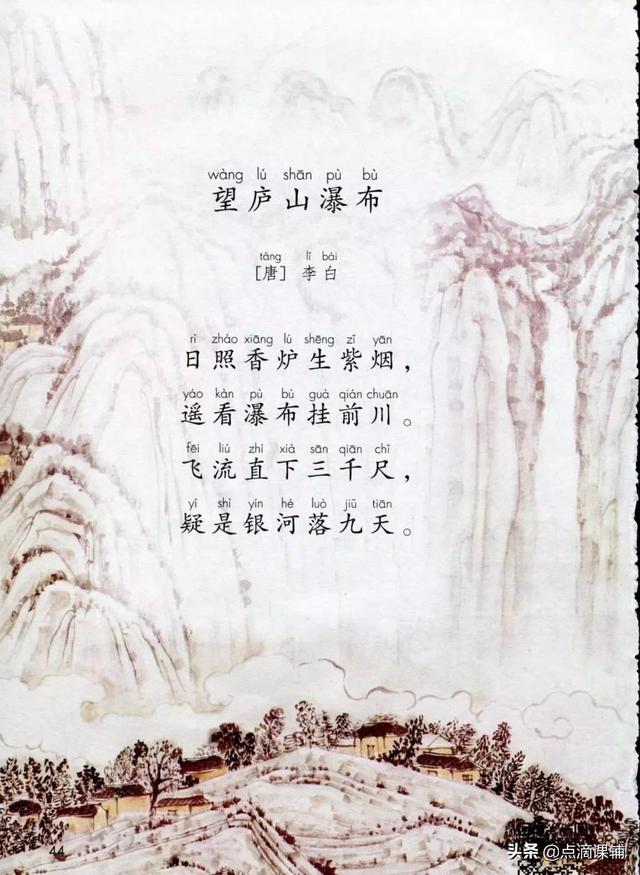 wàng lú shān pù bù
望庐山瀑布
táng lǐ bái
[唐] 李白
rì zhào xiāng lú shēng zǐ yān
日照香炉生紫烟，
yáo kàn pù bù guà qián chuān
遥看瀑布挂前川。
fēi liú zhí xià sān qiān chǐ
飞流直下三千尺，
yí shì yín hé luò jiǔ tiān
疑是银河落九天。
44
头条 @点滴课辅